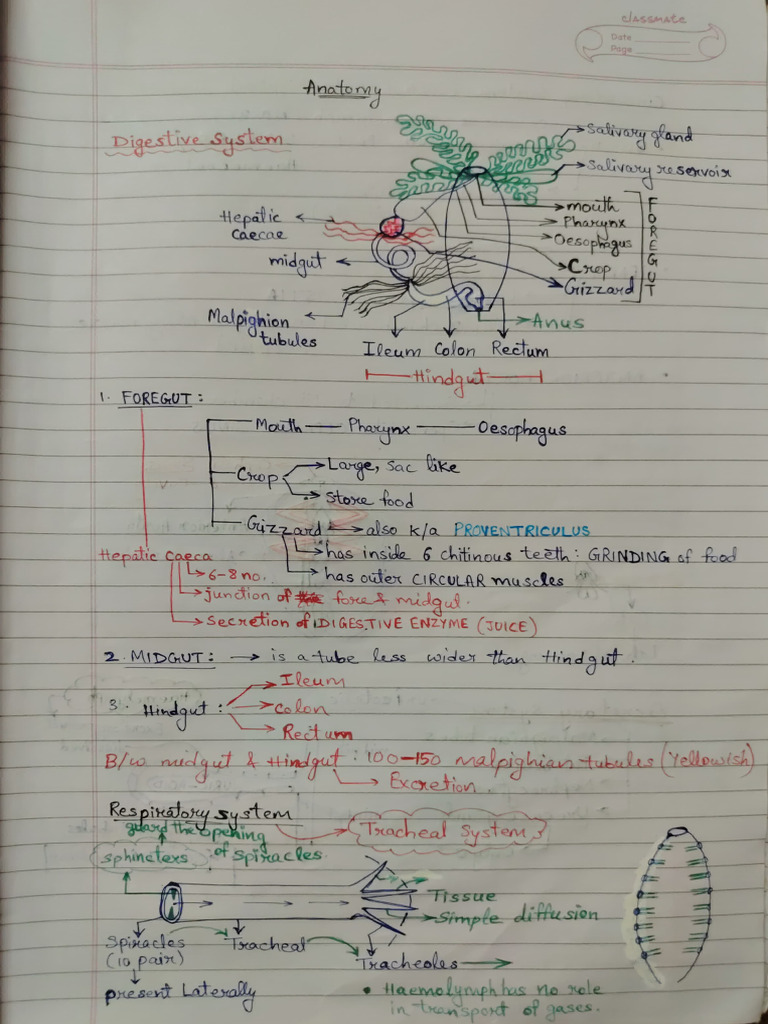 classmate
Date
Page
Anatomy
Digestive System
Salivary gland
Salivary reservoir
Hepatic
caecae
midgut
Malpighion
tubules
mouth
Pharynx
Oesophagus
Crop
Gizzard
FOREGUT
Anus
Ileum Colon Rectum
Hindgut
1. FOREGUT:
Mouth — Pharynx — Oesophagus
Crop
Large, sac like
store food
Gizzard → also k/a PROVENTRICULUS
has inside 6 chitinous teeth: GRINDING of food
has outer CIRCULAR muscles
Hepatic caeca
6-8 no.
junction of fore & midgut.
Secretion of DIGESTIVE ENZYME (JUICE)
2. MIDGUT: → is a tube less wider than Hindgut.
3. Hindgut:
Ileum
colon
Rectum
B/w midgut & Hindgut: 100-150 malpighian tubules (Yellowish)
Excretion.
Respiratory system
Tracheal System
guard the opening
sphincters : of spiracles.
Tissue
Simple diffusion
Spiracles
(10 pair)
Tracheal
Tracheoles
present Laterally
• Haemolymph has no role
in transport of gases.